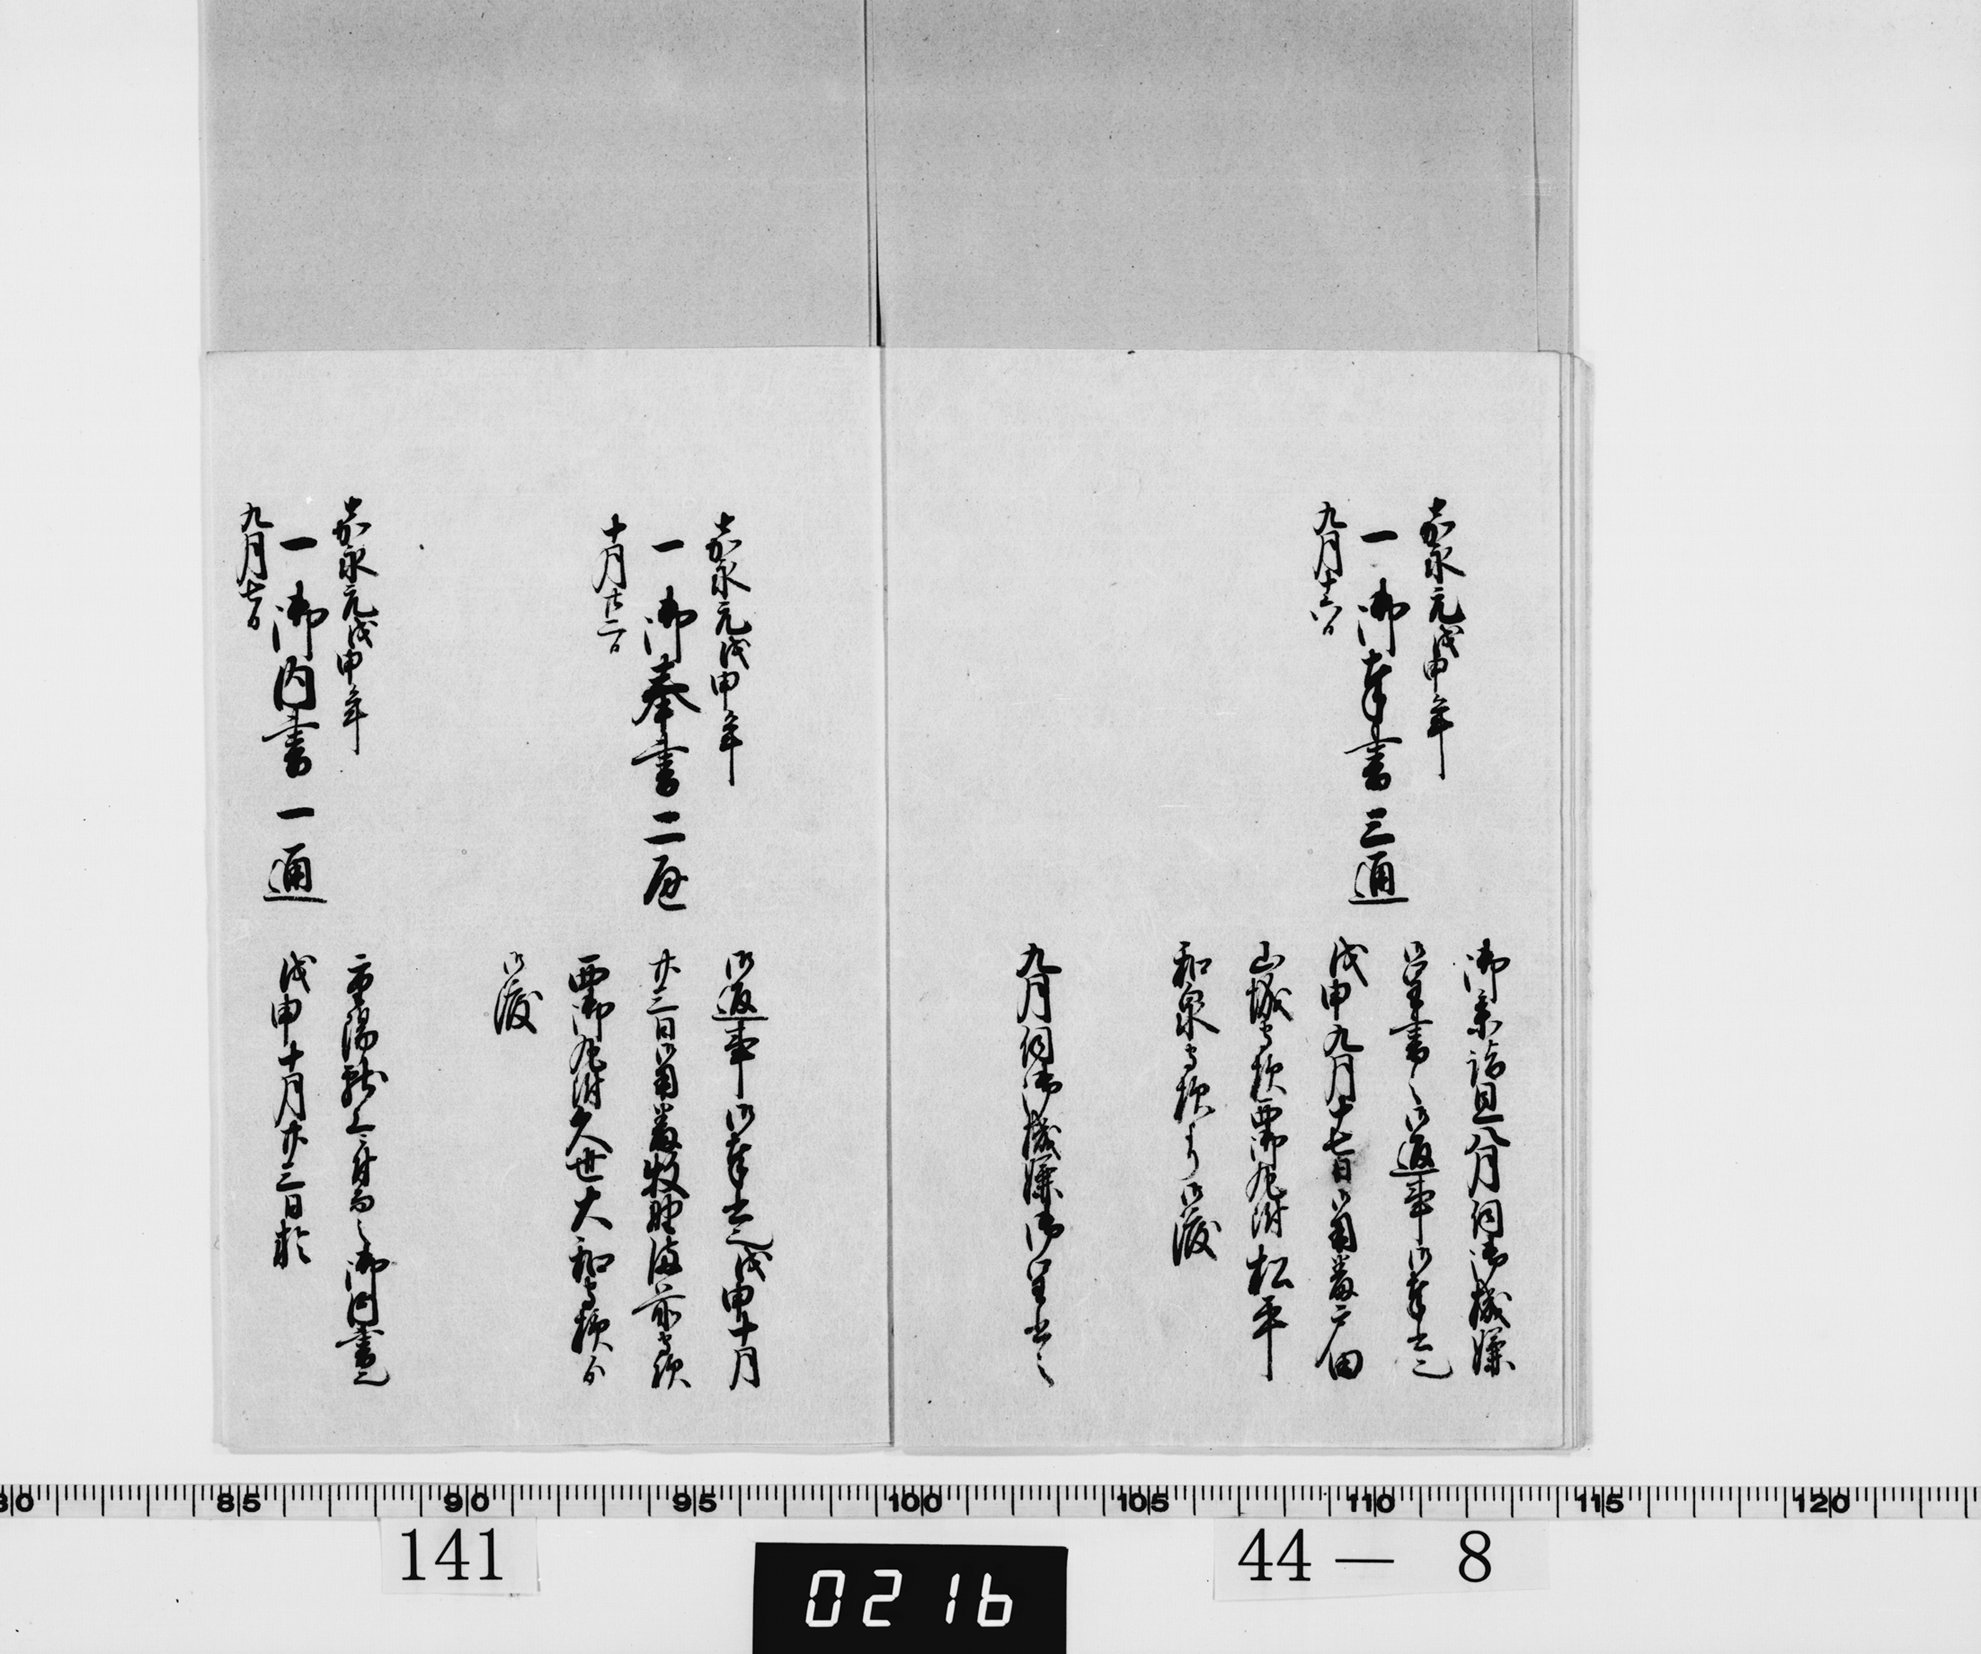 嘉永元戊申年
一御奉書三通
九月十六日
御参詣且八月伺御機嫌
御呈書之御返事御奉書也
戊申九月十七日御用番戸田
山城守様西御丸附松平
和泉守様より御渡
九月伺御機嫌御呈書之
嘉永元戊申年
一御奉書二通
十月廿二日
御返事御奉書也戊申十月
廿三日御用番牧野備前守様
西御丸附久世大和守様ゟ
御渡
嘉永元戊申年
一御内書一通
九月七日
重陽献上之御内書也
戊申十月廿三日於
80 85 90 95 100 105 110 115 120
141
0216
44— 8